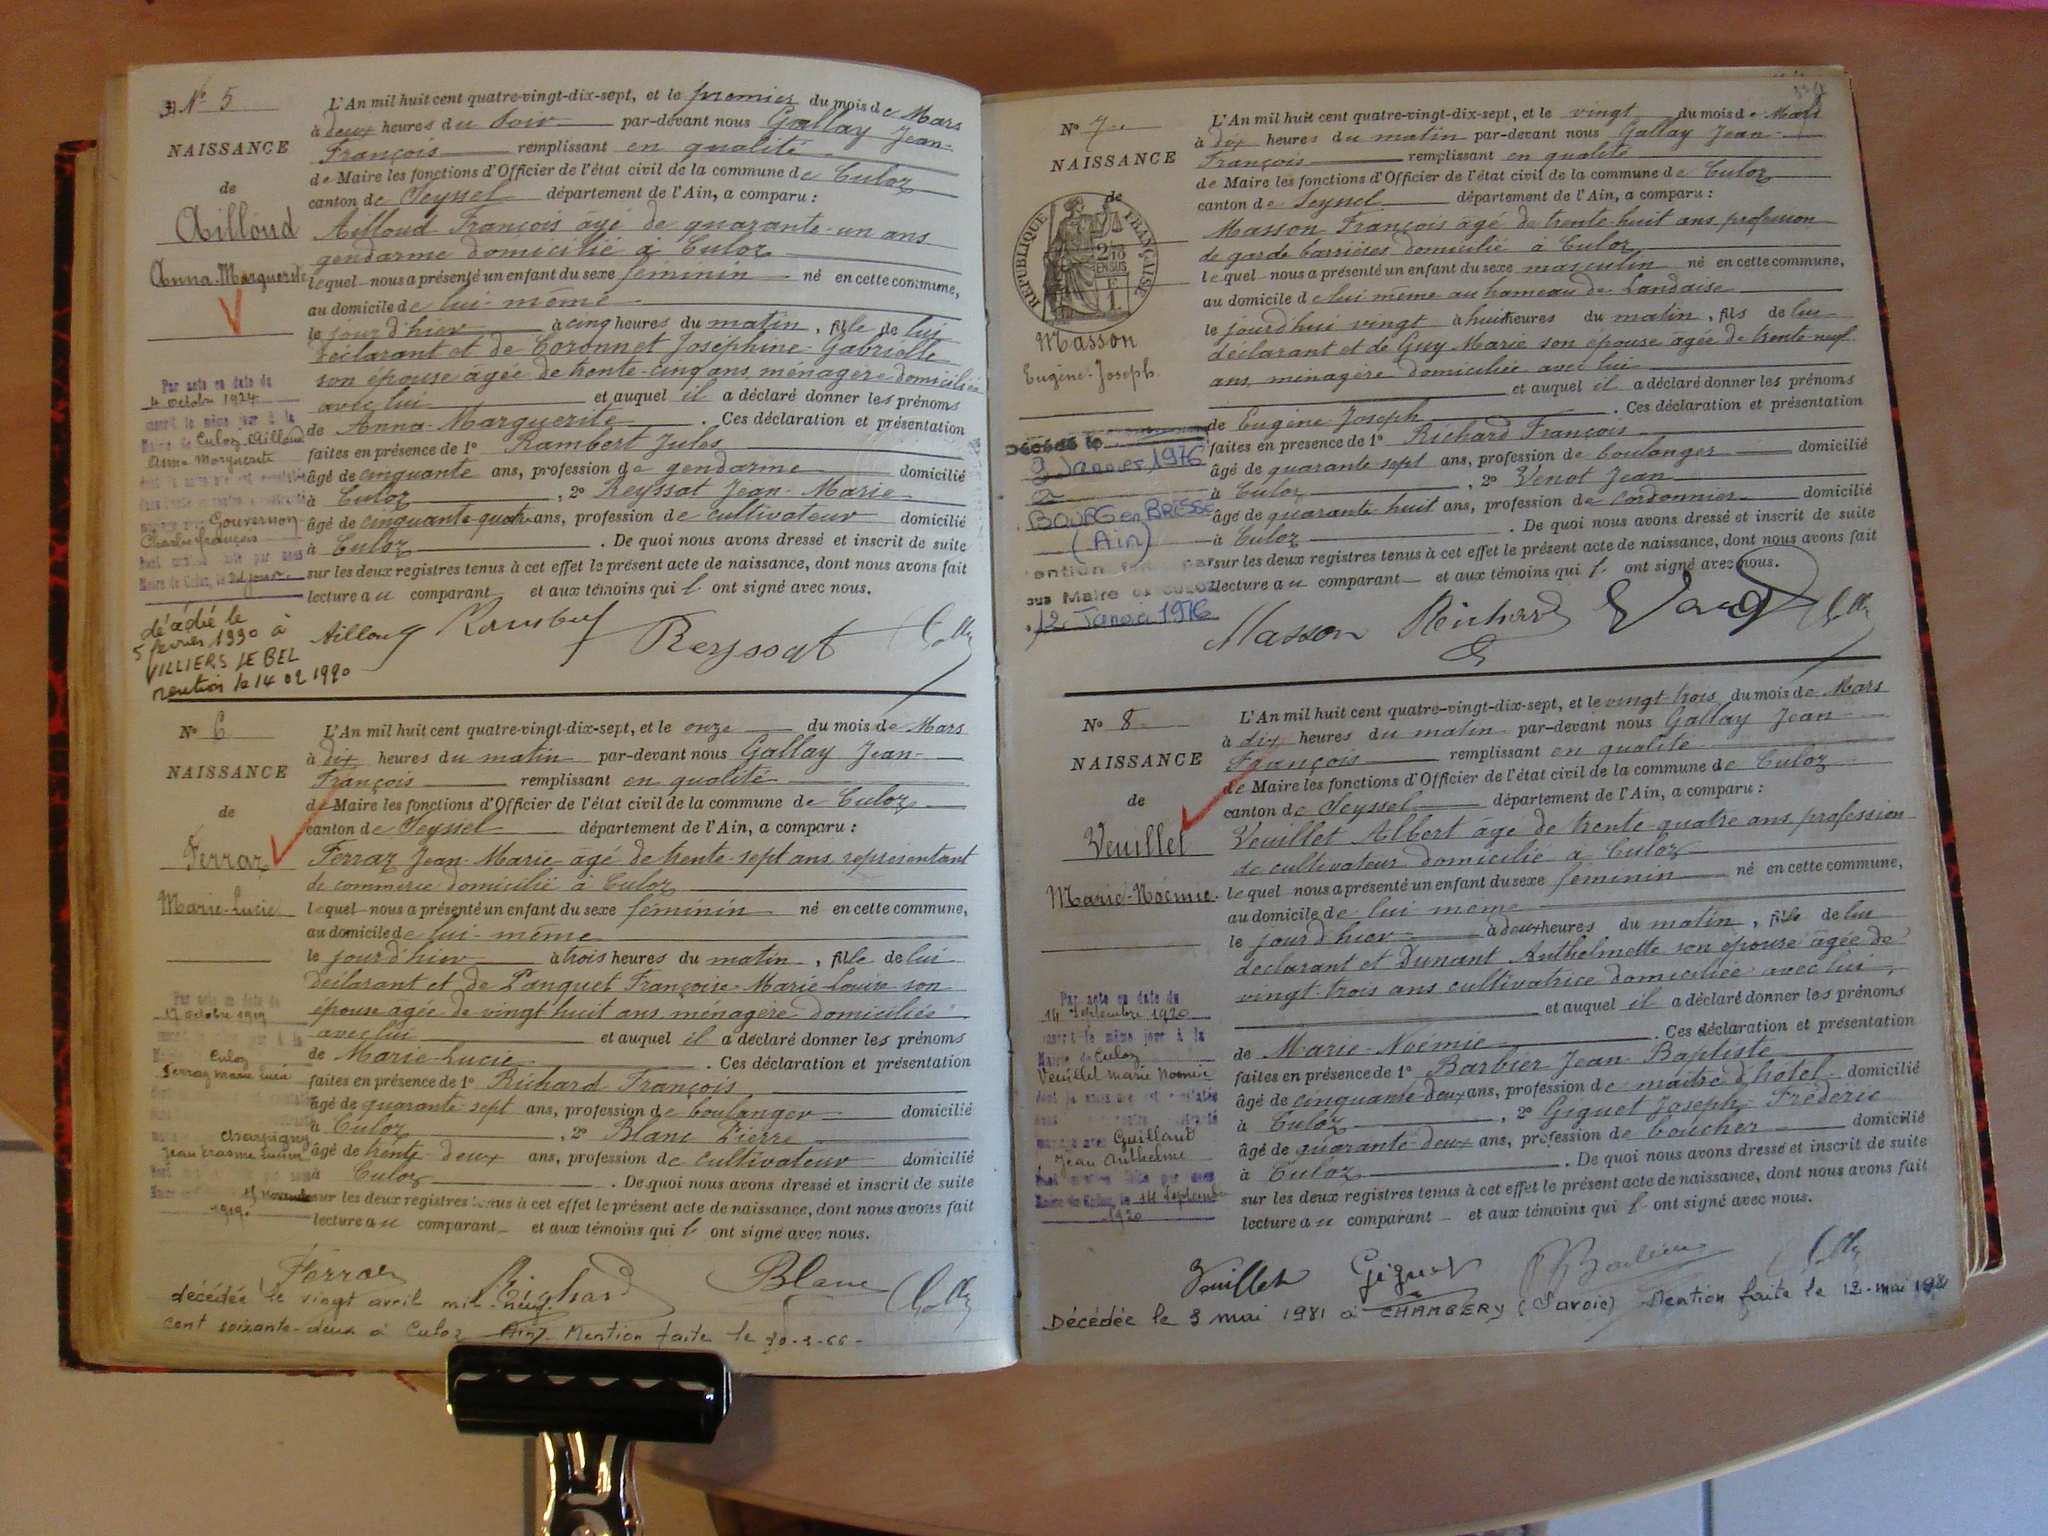 Nº 5
NAISSANCE
de
Ailloud
Anna-Marguerite
L'An mil huit cent quatre-vingt-dix-sept, et le premier du mois de Mars
à deux heures du soir par-devant nous Gallay Jean-
François remplissant en qualité
de Maire les fonctions d'Officier de l'état civil de la commune de Culoz
canton de Seyssel département de l'Ain, a comparu :
Ailloud François âgé de quarante-un ans
gendarme domicilié à Culoz
lequel nous a présenté un enfant du sexe féminin né en cette commune,
au domicile de lui-même
le jour d'hier à cinq heures du matin, fille de lui
déclarant et de Coronnet Joséphine-Gabrielle
son épouse âgée de trente-cinq ans, ménagère domiciliée
avec lui et auquel il a déclaré donner les prénoms
de Anna-Marguerite. Ces déclaration et présentation
faites en présence de 1º Rambert Jules
âgé de cinquante ans, profession de gendarme domicilié
à Culoz, 2º Reyssat Jean-Marie
âgé de cinquante-quatre ans, profession de cultivateur domicilié
à Culoz. De quoi nous avons dressé et inscrit de suite
sur les deux registres tenus à cet effet le présent acte de naissance, dont nous avons fait
lecture au comparant et aux témoins qui ont signé avec nous.
Par acte en date du
4 octobre 1924
inscrit le même jour à la
Mairie de Culoz Ailloud
Anna Marguerite
Gouvernon
Charles françois
Maire de Culoz, le
décédée le
5 février 1990 à
VILLIERS LE BEL
mention le 14 02 1990
Ailloud Rambert Reyssat
Nº 6
NAISSANCE
de
Ferraz
Marie-Lucie
L'An mil huit cent quatre-vingt-dix-sept, et le onze du mois de Mars
à dix heures du matin par-devant nous Gallay Jean-
François remplissant en qualité
de Maire les fonctions d'Officier de l'état civil de la commune de Culoz
canton de Seyssel département de l'Ain, a comparu :
Ferraz Jean-Marie âgé de trente-sept ans, représentant
de commerce domicilié à Culoz
lequel nous a présenté un enfant du sexe féminin né en cette commune,
au domicile de lui-même
le jour d'hier à trois heures du matin, fille de lui
déclarant et de Panguet Françoise-Marie-Louise son
épouse âgée de vingt huit ans ménagère domiciliée
avec lui et auquel il a déclaré donner les prénoms
de Marie-Lucie. Ces déclaration et présentation
faites en présence de 1º Richard François
âgé de quarante-sept ans, profession de boulanger domicilié
à Culoz, 2º Blanc Pierre
âgé de trente-deux ans, profession de cultivateur domicilié
à Culoz. De quoi nous avons dressé et inscrit de suite
sur les deux registres tenus à cet effet le présent acte de naissance, dont nous avons fait
lecture au comparant et aux témoins qui ont signé avec nous.
Par acte en date du
octobre 1919
Culoz
Ferraz marie lucie
Charpigny
1919.
Ferraz Richard Blanc
décédée le vingt avril mil-neuf
cent soixante-deux à Culoz Ain. Mention faite le
Nº 7
NAISSANCE
de
RÉPUBLIQUE FRANÇAISE
Masson
Eugène-Joseph
L'An mil huit cent quatre-vingt-dix-sept, et le vingt du mois de Mars
à dix heures du matin par-devant nous Gallay Jean-
François remplissant en qualité
de Maire les fonctions d'Officier de l'état civil de la commune de Culoz
canton de Seyssel département de l'Ain, a comparu :
Masson François âgé de trente-huit ans, profession
de garde barrières domicilié à Culoz
lequel nous a présenté un enfant du sexe masculin né en cette commune,
au domicile de lui même au hameau de Landaise
le jourd'hui vingt à huit heures du matin, fils de lui
déclarant et de Guy Marie son épouse âgée de trente-neuf
ans, ménagère domiciliée avec lui
et auquel il a déclaré donner les prénoms
de Eugène Joseph. Ces déclaration et présentation
faites en présence de 1º Richard François
âgé de quarante sept ans, profession de boulanger domicilié
à Culoz, 2º Venot Jean
âgé de quarante huit ans, profession de cordonnier domicilié
à Culoz. De quoi nous avons dressé et inscrit de suite
sur les deux registres tenus à cet effet le présent acte de naissance, dont nous avons fait
lecture au comparant et aux témoins qui ont signé avec nous.
Décédé le
9 Janvier 1976
à
BOURG en BRESSE
(Ain)
12 Janvier 1976
Masson Richard
Nº 8
NAISSANCE
de
Veuillet
Marie-Noémie
L'An mil huit cent quatre-vingt-dix-sept, et le vingt-trois du mois de Mars
à dix heures du matin par-devant nous Gallay Jean
François remplissant en qualité
de Maire les fonctions d'Officier de l'état civil de la commune de Culoz
canton de Seyssel département de l'Ain, a comparu :
Veuillet Albert âgé de trente-quatre ans profession
de cultivateur domicilié à Culoz
lequel nous a présenté un enfant du sexe féminin né en cette commune,
au domicile de lui même
le jour d'hier à deux heures du matin, fille de lui
déclarant et Dunant Anthelmette son épouse âgée de
vingt-trois ans cultivatrice domiciliée avec lui,
et auquel il a déclaré donner les prénoms
de Marie-Noémie. Ces déclaration et présentation
faites en présence de 1º Barbier Jean-Baptiste
âgé de cinquante-deux ans, profession de maître d'hôtel domicilié
à Culoz, 2º Giguet Joseph-Fréderic
âgé de quarante deux ans, profession de boucher domicilié
à Culoz. De quoi nous avons dressé et inscrit de suite
sur les deux registres tenus à cet effet le présent acte de naissance, dont nous avons fait
lecture au comparant et aux témoins qui ont signé avec nous.
Par acte en date du
14 septembre 1920
inscrit le même jour à la
Mairie de Culoz
Veuillet marie Noémie
Guilland
Jean Anthelme
Maire de Culoz, le 14 Septembre
1920
Veuillet Giguet
Décédée le 3 mai 1981 à CHAMBERY (Savoie) Mention faite le 12-mai 1981